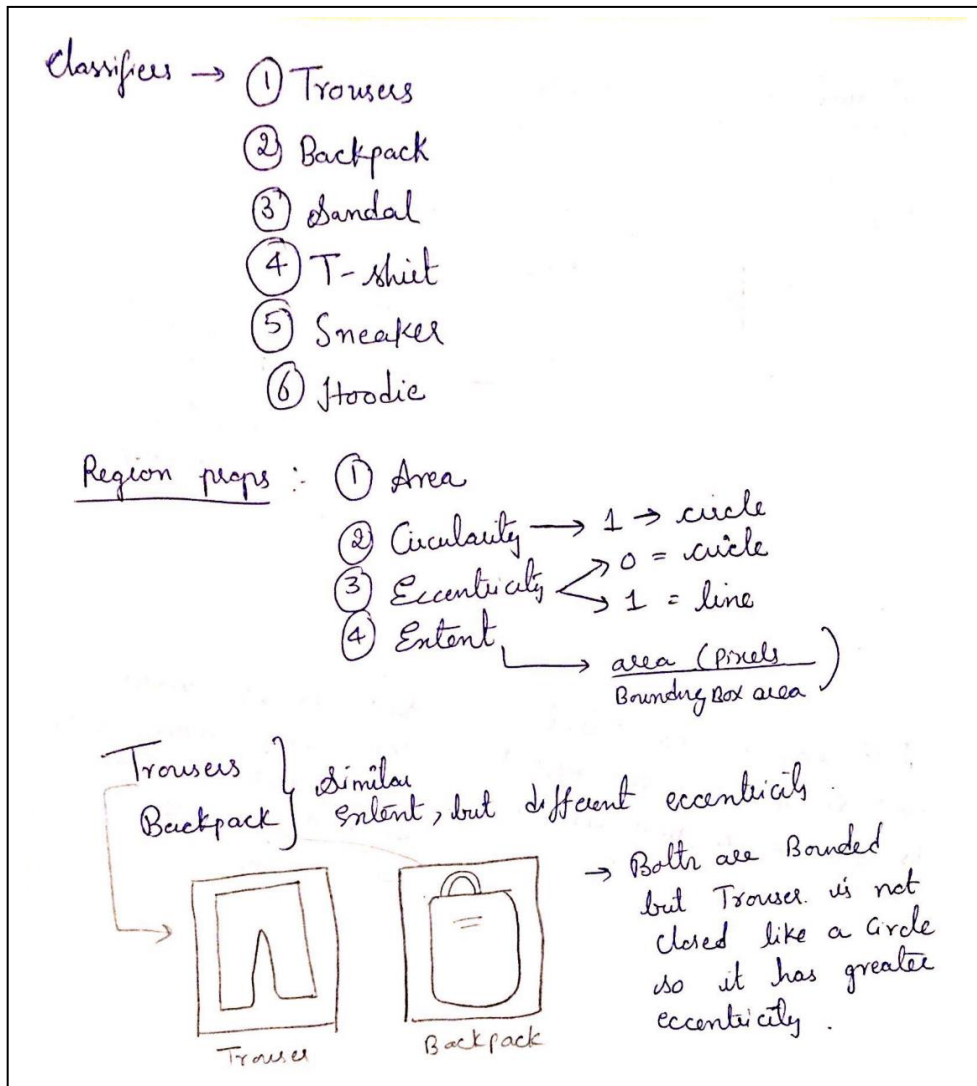 Classifiers → ① Trousers
② Backpack
③ Sandal
④ T-shirt
⑤ Sneaker
⑥ Hoodie
Region props : ① Area
② Circularity → 1 → circle
③ Eccentricity 0 = circle
1 = line
④ Extent → area (Pixels
Bounding Box area)
Trousers } Similar
Backpack } Extent, but different eccentricity.
→ Both are Bounded
but Trouser is not
closed like a Circle
so it has greater
eccentricity.
Trouser
Backpack